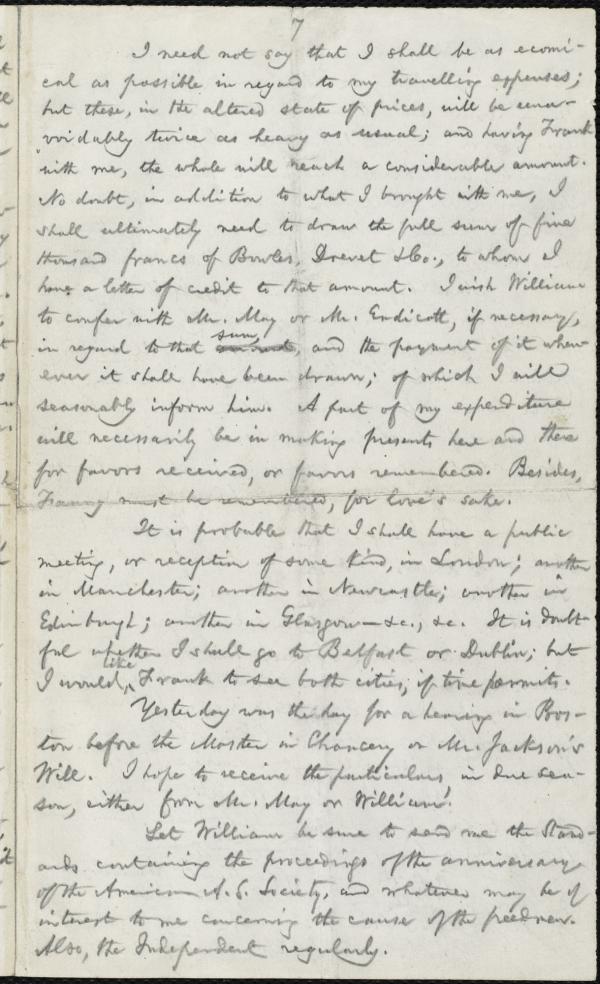 7
I need not say that I shall be as econi-
cal as possible in regard to my travelling expenses;
but these, in the altered state of prices, will be una-
voidably twice as heavy as usual; and having Frank
with me, the whole will reach a considerable amount.
No doubt, in addition to what I brought with me, I
shall ultimately need to draw the full sum of five
thousand francs of Bowles, Drevet &Co., to whom I
have a letter of credit to that amount. I wish William
to confer with Mr. May or Mr. Endicott, if necessary,
in regard to that sum, amount, and the payment of it when-
ever it shall have been drawn; of which I will
seasonably inform him. A part of my expenditure
will necessarily be in making presents here and there
for favors received, or favors remembered. Besides,
Fanny must be remembered, for love's sake.
It is probable that I shall have a public
meeting, or reception of some kind, in London; another
in Manchester; another in Newcastle; another in
Edinburgh; another in Glasgow—&c., &c. It is doubt-
ful whether I shall go to Belfast or Dublin; but
I would like Frank to see both cities, if time permits.
Yesterday was the day for a hearing in Bos-
ton before the Master in Chancery on Mr. Jackson's
Will. I hope to receive the particulars in due sea-
son, either from Mr. May or William.
Let William be sure to send me the Stand-
ards containing the proceedings of the anniversary
of the American A. S. Society, and whatever may be of
interest to me concerning the cause of the freedmen.
Also, the Independent regularly.